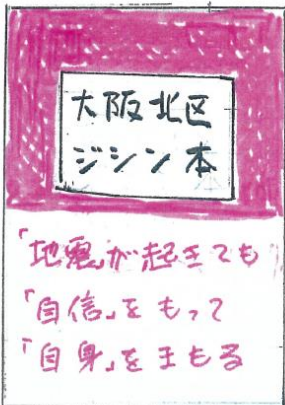 大阪北区
ジシン本
「地震」が起きても
「自信」をもって
「自身」をまもる